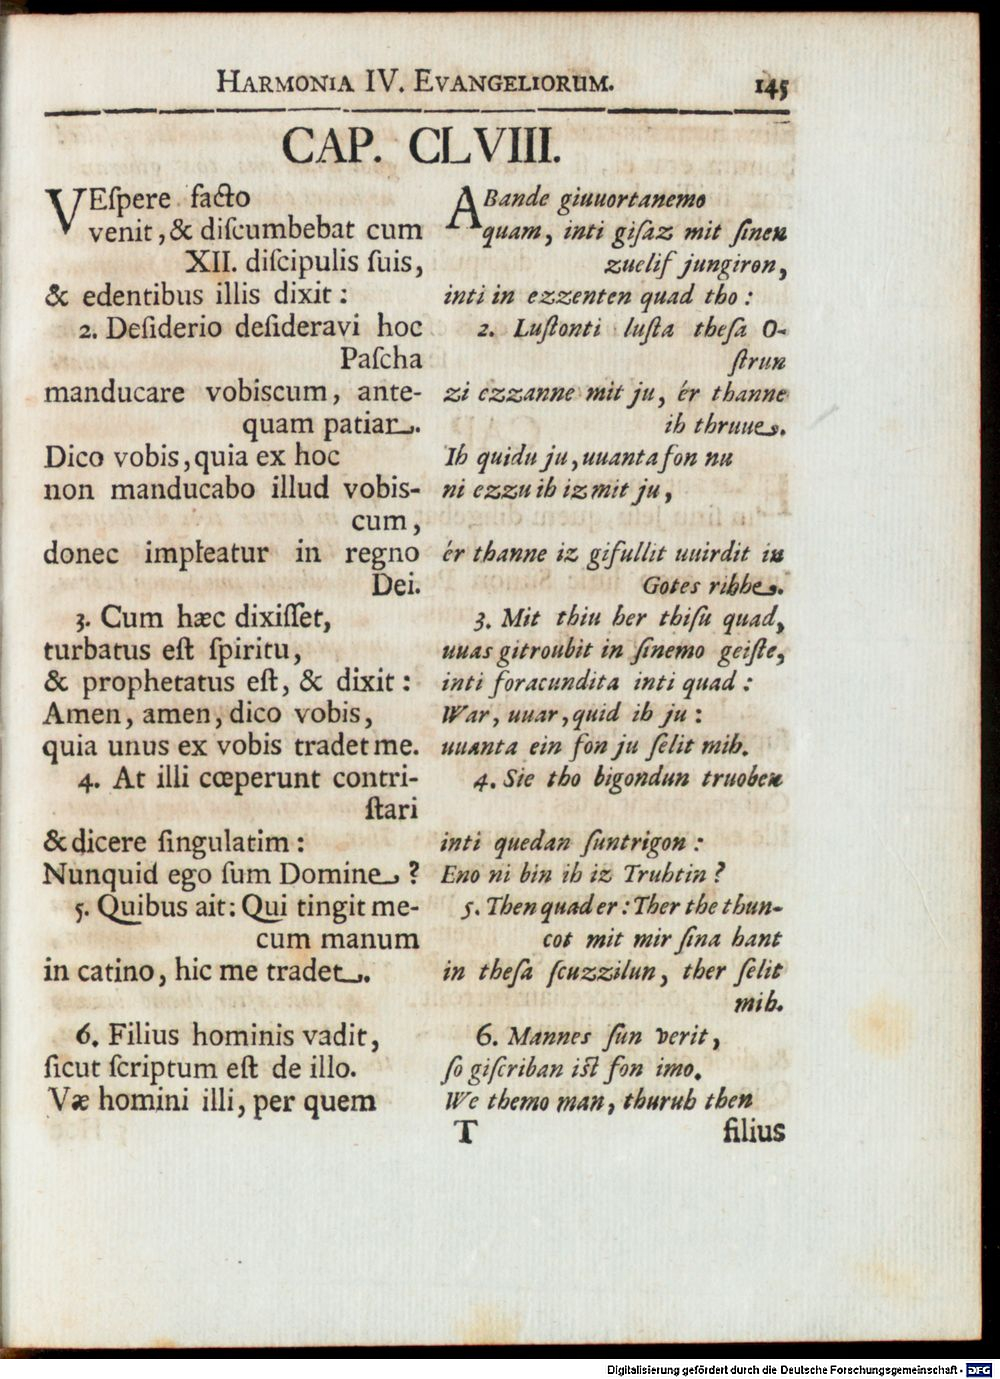 HARMONIA IV. EVANGELIORUM. 145
CAP. CLVIII.
VEſpere facto
venit, & diſcumbebat cum
XII. diſcipulis ſuis,
& edentibus illis dixit:
2. Deſiderio deſideravi hoc
Paſcha
manducare vobiscum, ante-
quam patiar.
Dico vobis, quia ex hoc
non manducabo illud vobis-
cum,
donec impleatur in regno
Dei.
3. Cum hæc dixiſſet,
turbatus eſt ſpiritu,
& prophetatus eſt, & dixit:
Amen, amen, dico vobis,
quia unus ex vobis tradet me.
4. At illi cœperunt contri-
ſtari
& dicere ſingulatim:
Nunquid ego ſum Domine?
5. Quibus ait: Qui tingit me-
cum manum
in catino, hic me tradet.
6. Filius hominis vadit,
ſicut ſcriptum eſt de illo.
Væ homini illi, per quem
ABande giuuortanemo
quam, inti giſaz mit ſinen
zuelif jungiron,
inti in ezzenten quad tho:
2. Luſtonti luſta theſa O-
ſtrun
zi ezzanne mit ju, ér thanne
ih thruue.
Ih quidu ju, uuanta fon nu
ni ezzu ih iz mit ju,
ér thanne iz gifullit uuirdit in
Gotes rihhe.
3. Mit thiu her thiſu quad,
uuas gitroubit in ſinemo geiſte,
inti foracundita inti quad:
War, uuar, quid ih ju:
uuanta ein fon ju ſelit mih.
4. Sie tho bigondun truoben
inti quedan ſuntrigon:
Eno ni bin ih iz Truhtin?
5. Then quad er: Ther the thun-
cot mit mir ſina hant
in theſa ſcuzzilun, ther ſelit
mih.
6. Mannes ſun verit,
ſo giſcriban iſt fon imo.
We themo man, thuruh then
T filius
Digitalisierung gefördert durch die Deutsche Forschungsgemeinschaft - DFG